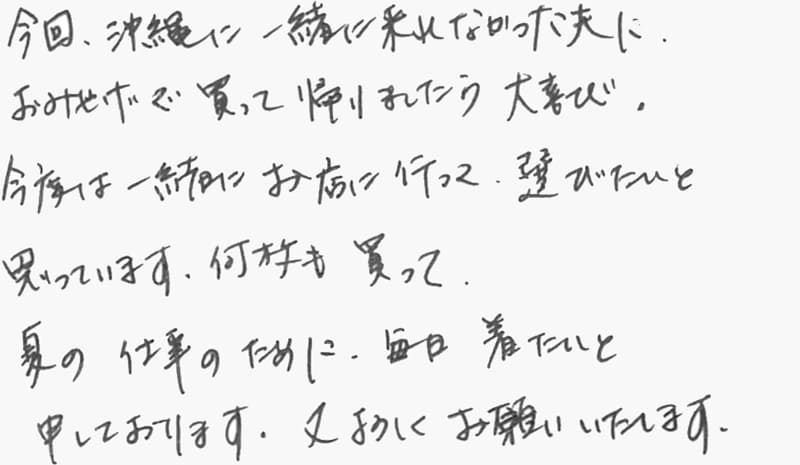 今回、沖縄に一緒に来れなかった夫に、
おみやげで買って帰りましたら大喜び。
今度は一緒にお店に行って、選びたいと
思っています。何枚も買って、
夏の仕事のために、毎日着たいと
申しております。又よろしくお願いいたします。